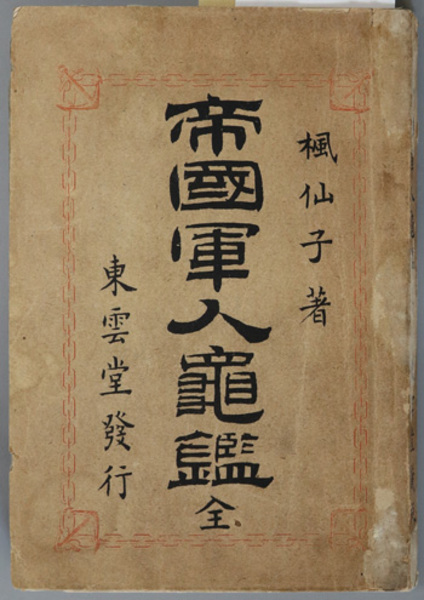 楓仙子著
帝國軍人龜鑑全
東雲堂發行